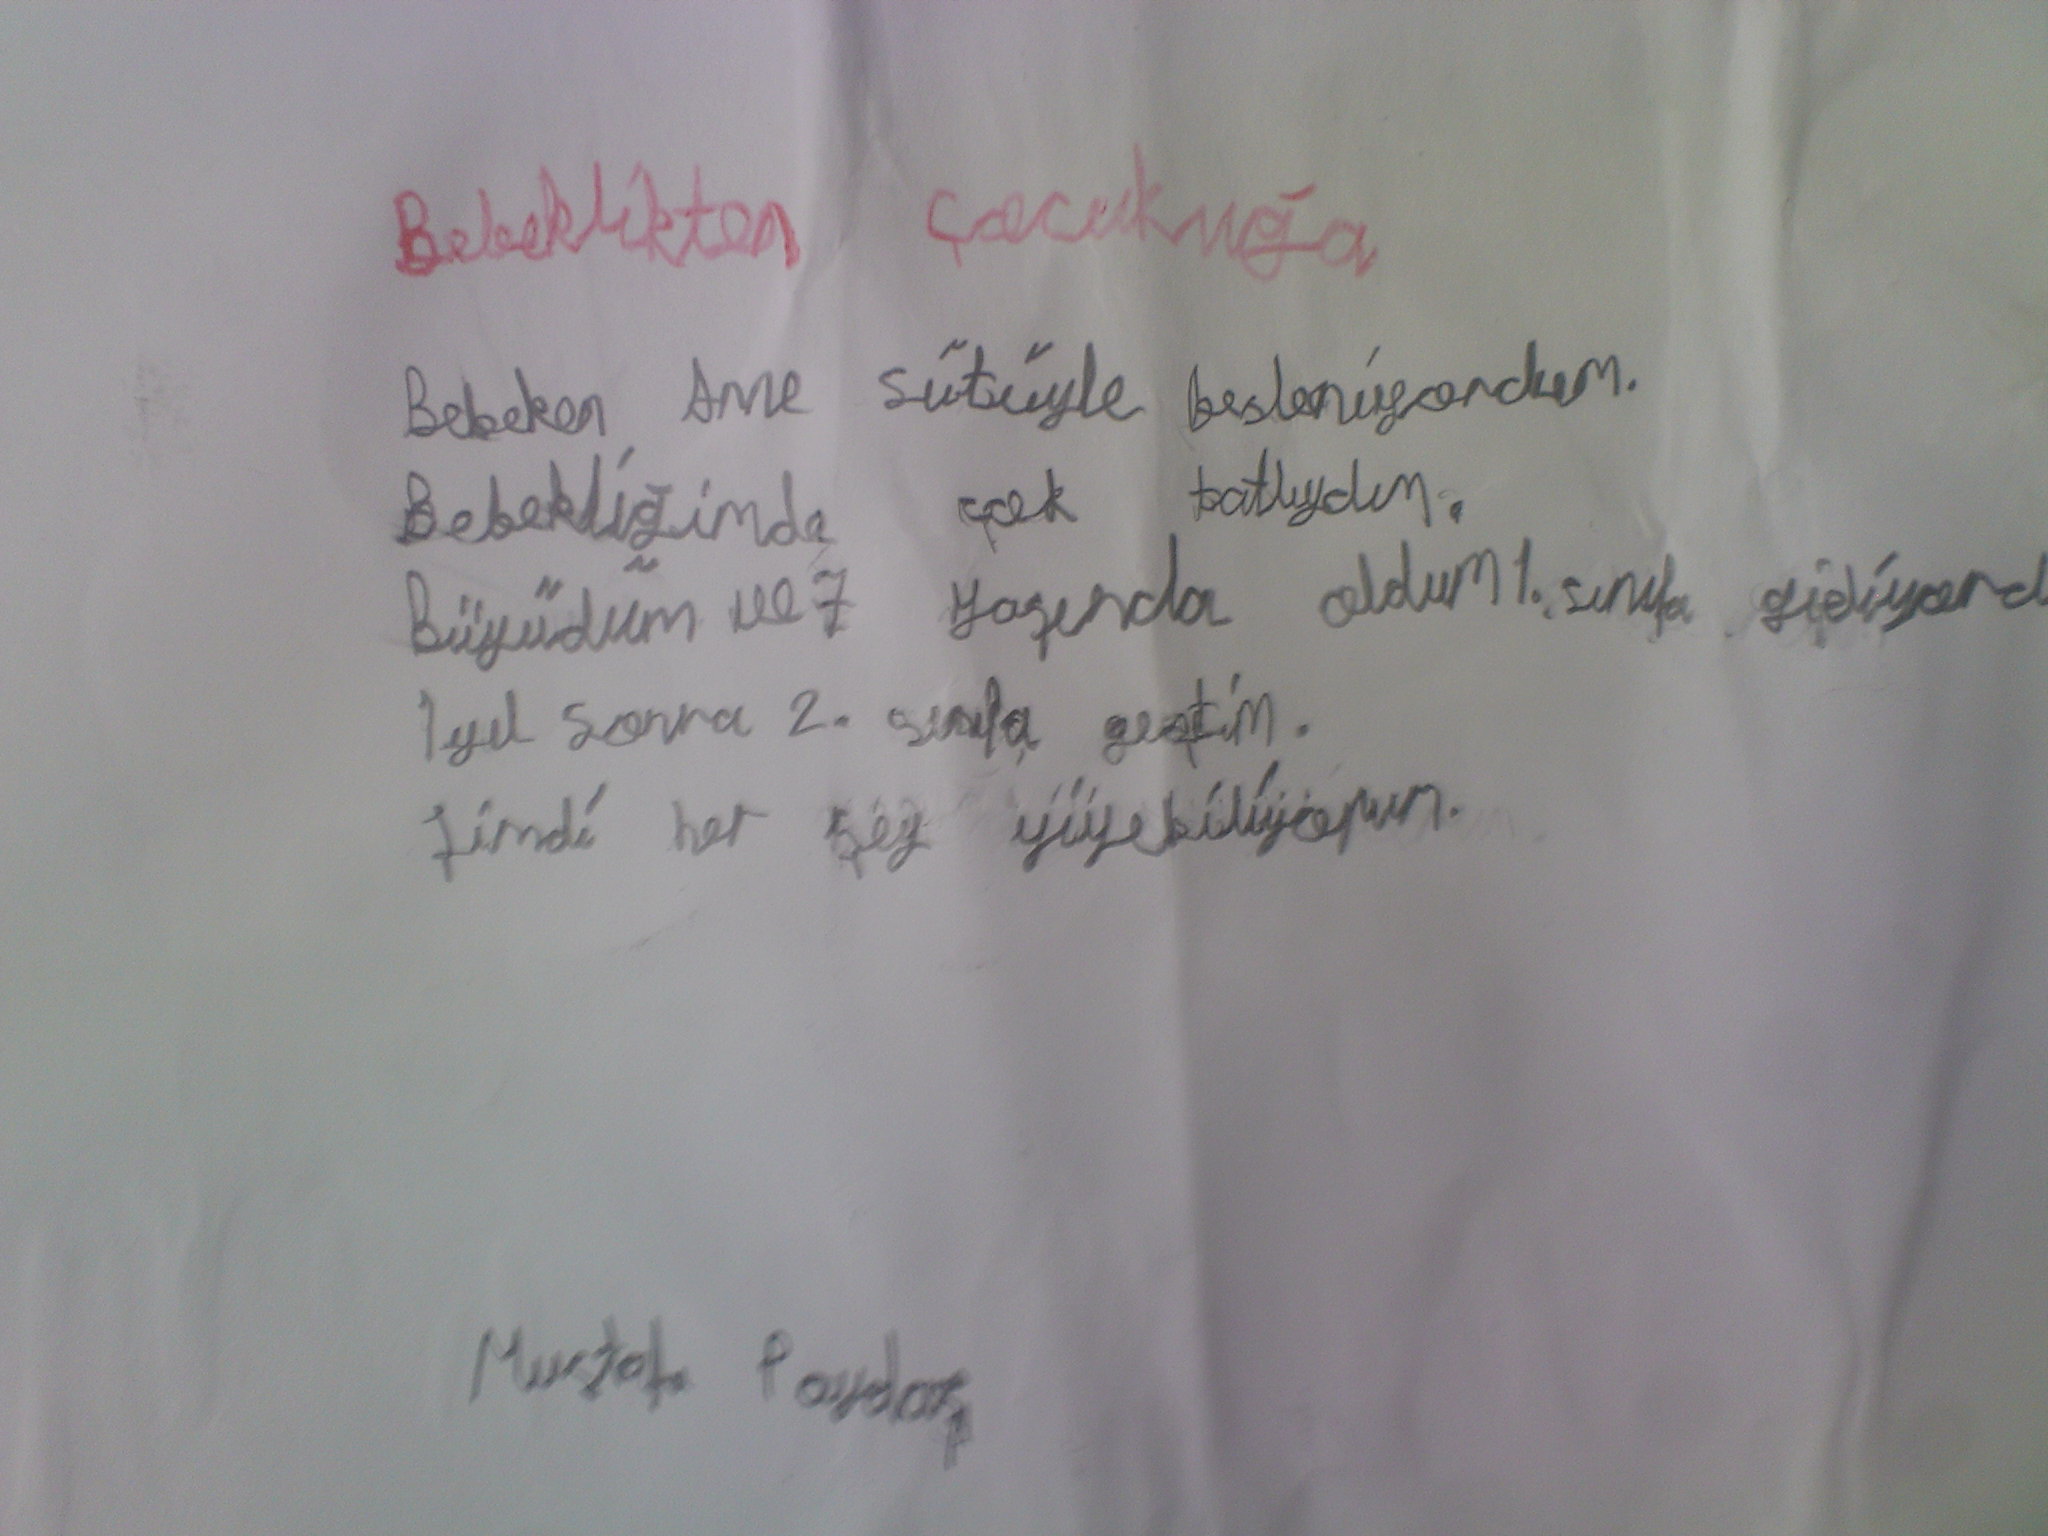 Bebeklikten çocukuğa
Bebeken Anne sütüyle besleniyordum.
Bebekliğimde çok tatlıydım.
Büyüdüm ve 7 yaşında oldum 1. sınıfa gidiyord
1 yıl sonra 2. sınıfa geçtim.
Şimdi her şey yiyebiliyorum.
Mustafa Paydaş